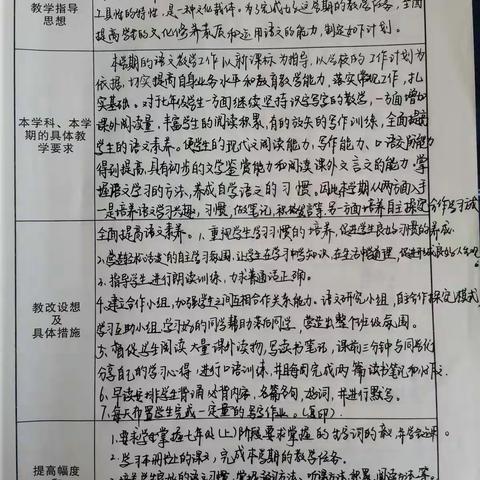 教学指导
思想
工具性的特性，是一种文化载体。为了完成好这学期的教学任务，全面
提高学生的文化修养素质和运用语文的能力，制定如下计划。
本学科、本学
期的具体教
学要求
本学期的语文教学工作以新课标为指导，以学校的工作计划为
依据，切实提高自身业务水平和教育教学能力，落实常规工作，扎
实基础。对七年级学生一方面继续坚持识字写字的教学，一方面增加
课外阅读量，丰富学生的阅读积累，有的放矢的写作训练，全面提高
学生的语文素养。使学生的现代文阅读能力、写作能力、口语交际能力
得到提高，具有初步的文学鉴赏能力和阅读课外文言文的能力，掌
握语文学习的方法，养成自学语文的习惯。因此本学期从两方面入手
一是培养语文学习兴趣，习惯，做笔记，积极发言等，另一方面培养自主探究合作学习
教改设想
及
具体措施
全面提高语文素养。1、重视学生学习习惯的培养，促进学生良好习惯的养成。
的学习氛围，让学生在学习中学知识，在生活中
3、指导学生进行朗读训练，力求普通话正确。
4、建立合作小组，加强学生之间互相合作关系能力。语文研究小组，自主合作探究模式，
学习互助小组，学习好的同学帮助落后同学，营造出整个班级氛围。
5、督促学生阅读大量课外读物，写读书笔记，课前三分钟与同学们
分享自己的学习心得，进行口语训练，并且每周完成两篇读书笔记和小作文。
6、早读安排学生背诵必背内容，名篇名句，好词，并进行默写。
7、每天布置学生完成一定量的书写作业。（复印）
提高幅度
1、要求学生掌握七年级（上）阶段要求掌握的生字词的
2、学习本册的课文，完成本学期的教学任务。